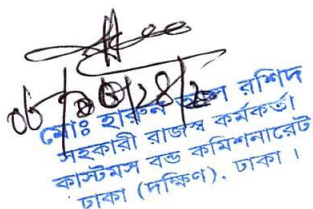 মোঃ হারুন অল রশিদ
সহকারী রাজস্ব কর্মকর্তা
কাস্টমস বন্ড কমিশনারেট
ঢাকা (দক্ষিণ), ঢাকা ।